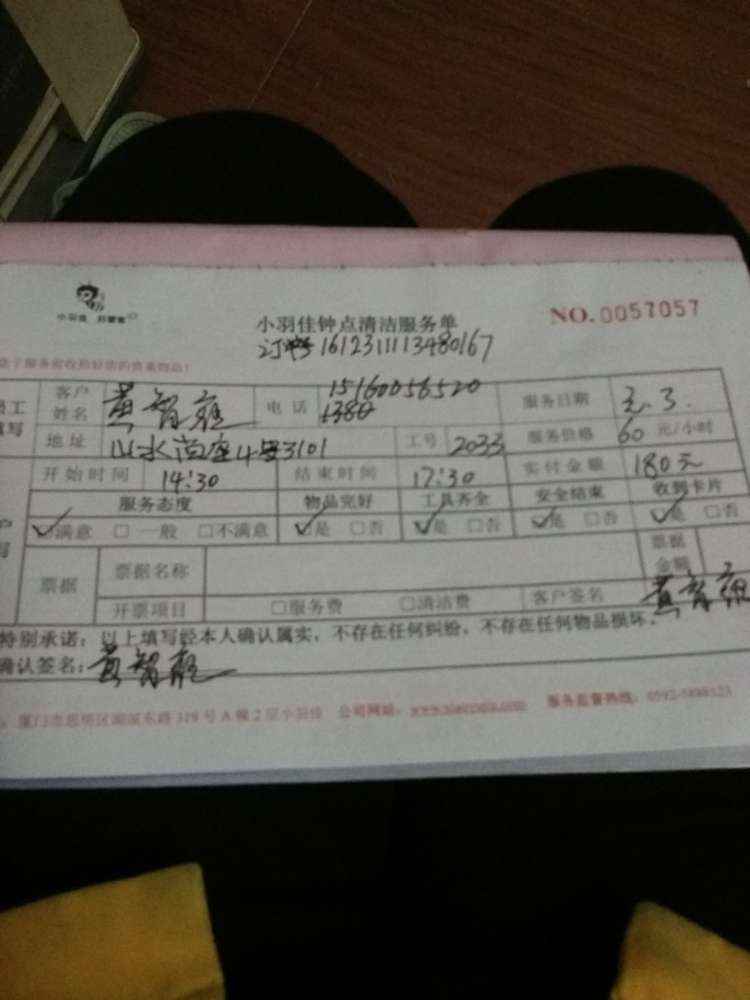 小羽佳 好管家
小羽佳钟点清洁服务单
NO.0057057
订单号1612311113480167
客户姓名 黄智雄 电话 15160056520 服务日期 元.3.
地址 山水尚座4号3101 工号 2033 服务价格 60 元/小时
开始时间 14:30 结束时间 17:30 实付金额 180元
服务态度 物品完好 工具齐全 安全结束 收到卡片
☑满意 □一般 □不满意 ☑是 □否 ☑是 □否 ☑是 □否 ☑是 □否
票据 票据名称 票据金额
开票项目 □服务费 □清洁费 客户签名 黄智雄
特别承诺:以上填写经本人确认属实,不存在任何纠纷,不存在任何物品损坏。
确认签名:黄智雄
厦门市思明区湖滨东路319号A栋2层小羽佳 公司网站: 服务监督热线: